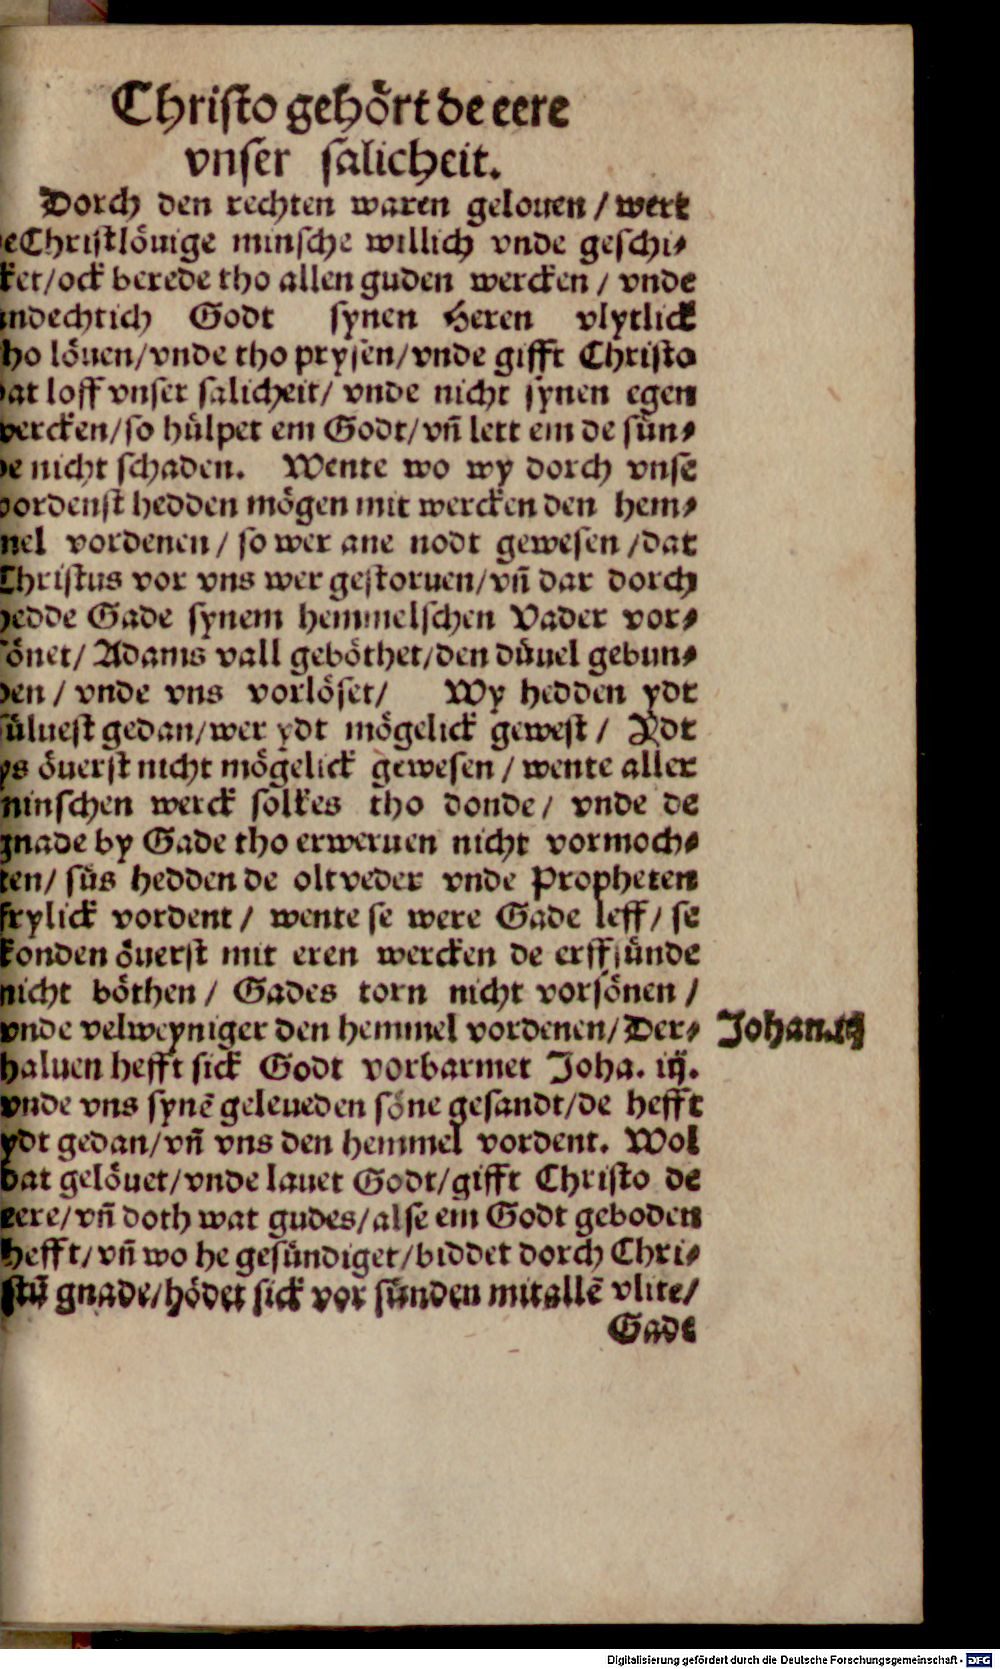 Christo gehört de eere
vnser salicheit.
Dorch den rechten waren gelouen / wert
e Christlöuige minsche willich vnde geschi⸗
ket / ock berede tho allen guden wercken / vnde
andechtich Godt synen Heren vlytlick
ho löuen / vnde tho prysen / vnde gifft Christo
dat loff vnser salicheit / vnde nicht synen egen
wercken / so hülpet em Godt / vñ lett em de sün⸗
de nicht schaden. Wente wo wy dorch vnse
vordenst hedden mögen mit wercken den hem⸗
mel vordenen / so wer ane nodt gewesen / dat
Christus vor vns wer gestoruen / vñ dar dorch
hedde Gade synem hemmelschen Vader vor⸗
sönet / Adams vall geböthet / den düuel gebun⸗
den / vnde vns vorlöset / Wy hedden ydt
süluest gedan / wer ydt mögelick gewest / Ydt
ys öuerst nicht mögelick gewesen / wente aller
minschen werck solkes tho donde / vnde de
gnade by Gade tho erweruen nicht vormoch⸗
ten / süs hedden de oltveder vnde Propheten
frylick vordent / wente se were Gade leff / se
konden öuerst mit eren wercken de erffsünde
nicht böthen / Gades torn nicht vorsönen /
vnde velweyniger den hemmel vordenen / Der⸗
haluen hefft sick Godt vorbarmet Joha. iij.
Johan.iij
vnde vns synē geleueden söne gesandt / de hefft
ydt gedan / vñ vns den hemmel vordent. Wol
dat gelöuet / vnde lauet Godt / gifft Christo de
eere / vñ doth wat gudes / alse em Godt geboden
hefft / vñ wo he gesündiget / biddet dorch Chri⸗
stū gnade / hödet sick vor sünden mit allē vlite /
Gade
Digitalisierung gefördert durch die Deutsche Forschungsgemeinschaft - DFG